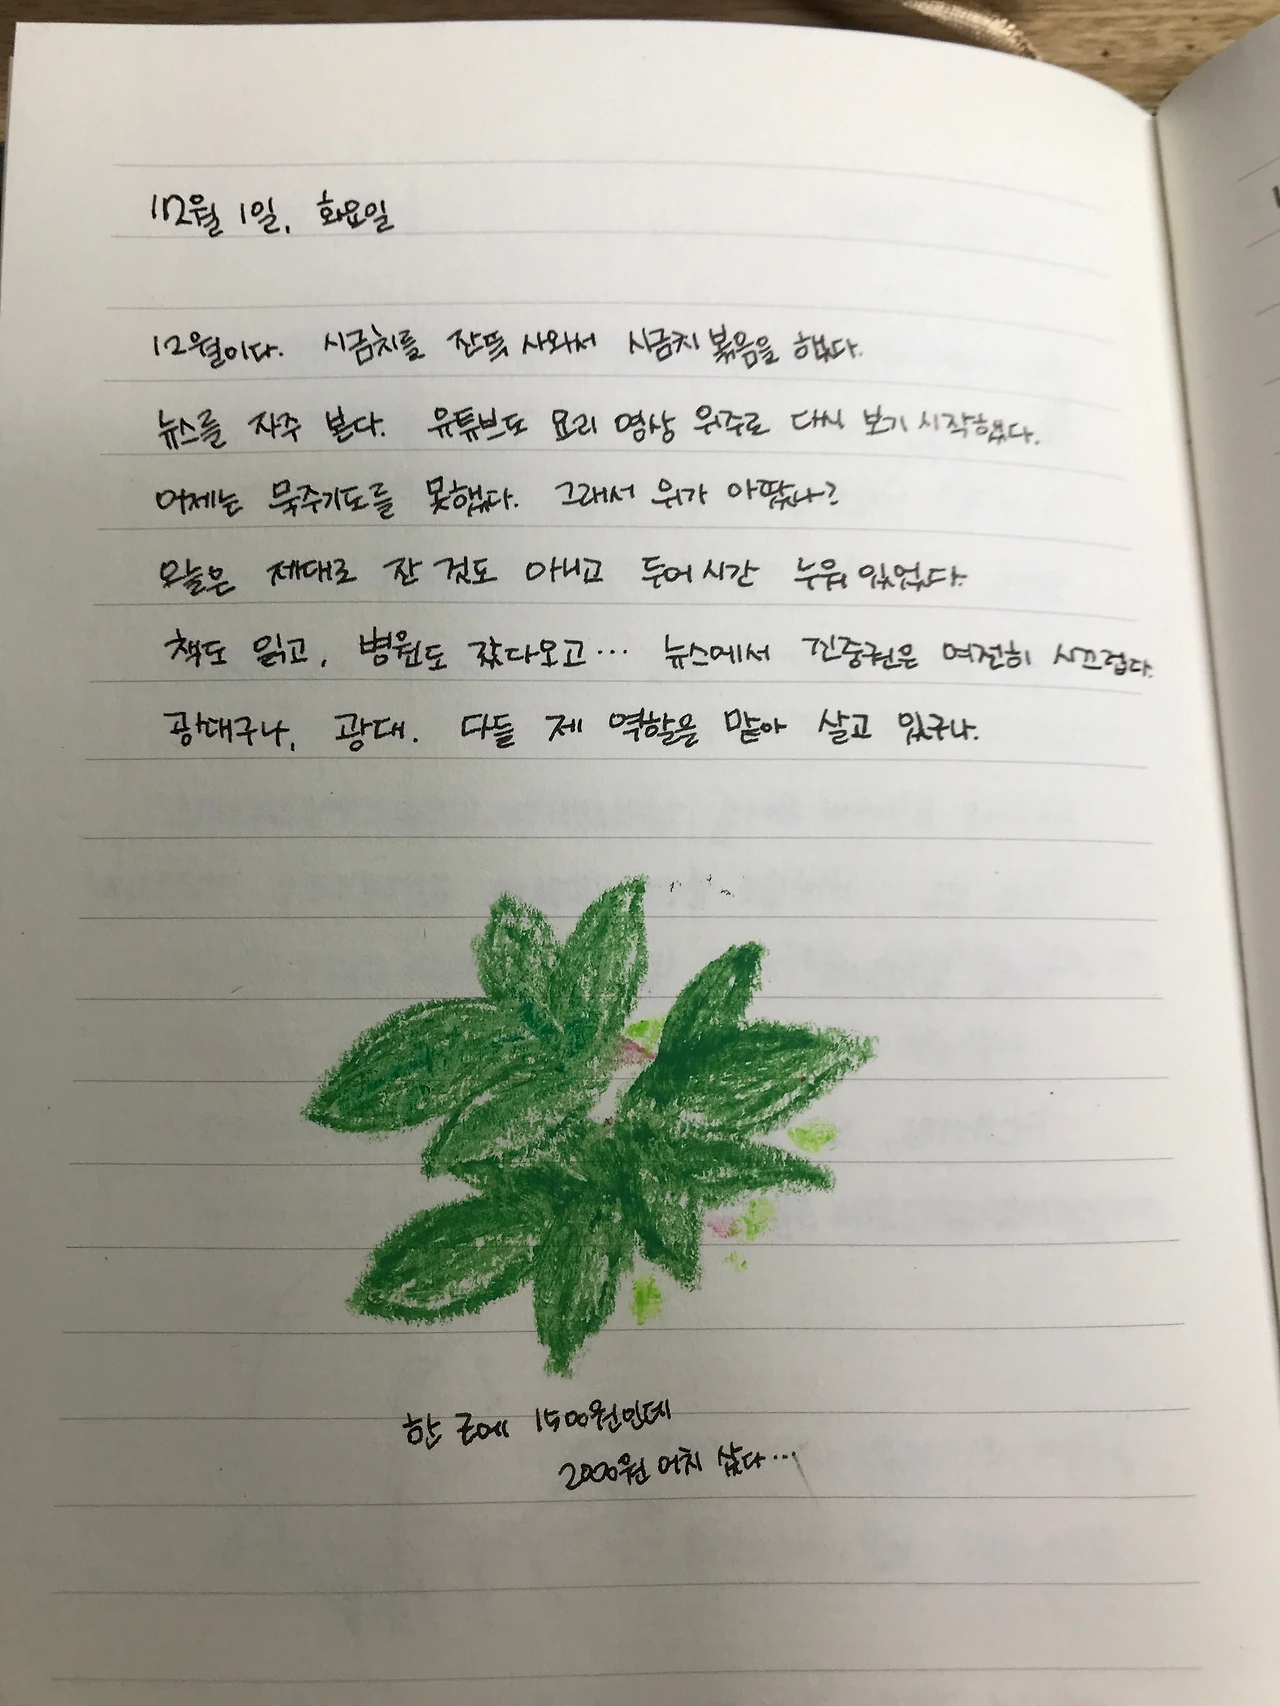 12월 1일, 화요일
12월이다. 시금치를 잔뜩 사와서 시금치 볶음을 했다.
뉴스를 자주 본다. 유튜브도 요리 영상 위주로 다시 보기 시작했다.
어제는 묵주기도를 못했다. 그래서 위가 아팠나?
오늘은 제대로 잔 것도 아니고 두어시간 누워 있었다.
책도 읽고, 병원도 갔다오고… 뉴스에서 진중권은 여전히 시끄럽다.
광대구나, 광대. 다들 제 역할을 맡아 살고 있구나.
한 근에 1500원인데
2000원 어치 샀다…